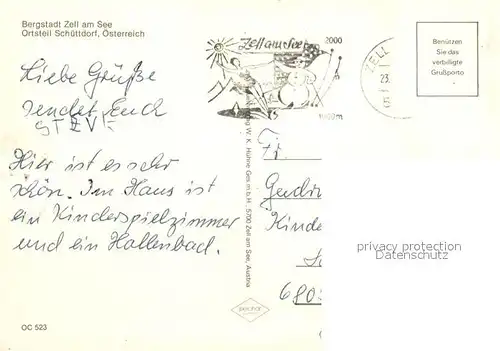 Bergstadt Zell am See
Ortsteil Schüttdorf, Österreich
Liebe Grüße
sendet Euch
STEVE
Hier ist es sehr
schön. Im Haus ist
ein Kinderspielzimmer
und ein Hallenbad.
OC 523
Zell am See
2000
1000m
ZELL
23.
5
Benützen
Sie das
verbilligte
Grußporto
W. K. Hühne Ges.m.b.H. 5700 Zell am See, Austria
Kinde
680
privacy protection
Datenschutz